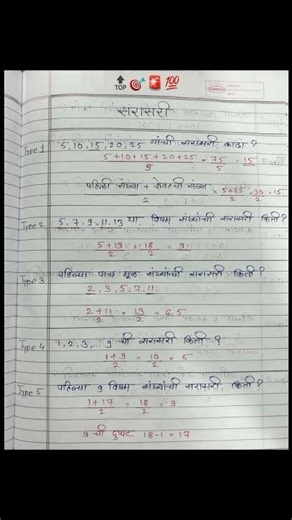 TOP
सरासरी
Type 1 5, 10, 15, 20, 25 यांची सरासरी काढा ?
5+10+15+20+25 / 5 = 75 / 5 = 15
पहिली संख्या + शेवटची संख्या / 2 = 5+25 / 2 = 30 / 2 = 15
Type 2 5, 7, 9, 11, 13 या विषम संख्यांची सरासरी किती ?
5+13 / 2 = 18 / 2 = 9
Type 3 पहिल्या पाच मूळ संख्यांची सरासरी किती ?
2, 3, 5, 7, 11
2+11 / 2 = 13 / 2 = 6.5
Type 4 1, 2, 3, .. 9 ची सरासरी किती ?
1+9 / 2 = 10 / 2 = 5
Type 5 पहिल्या 9 विषम संख्यांची सरासरी, किती ?
1+17 / 2 = 18 / 2 = 9
9 ची दुप्पट 18-1 = 17